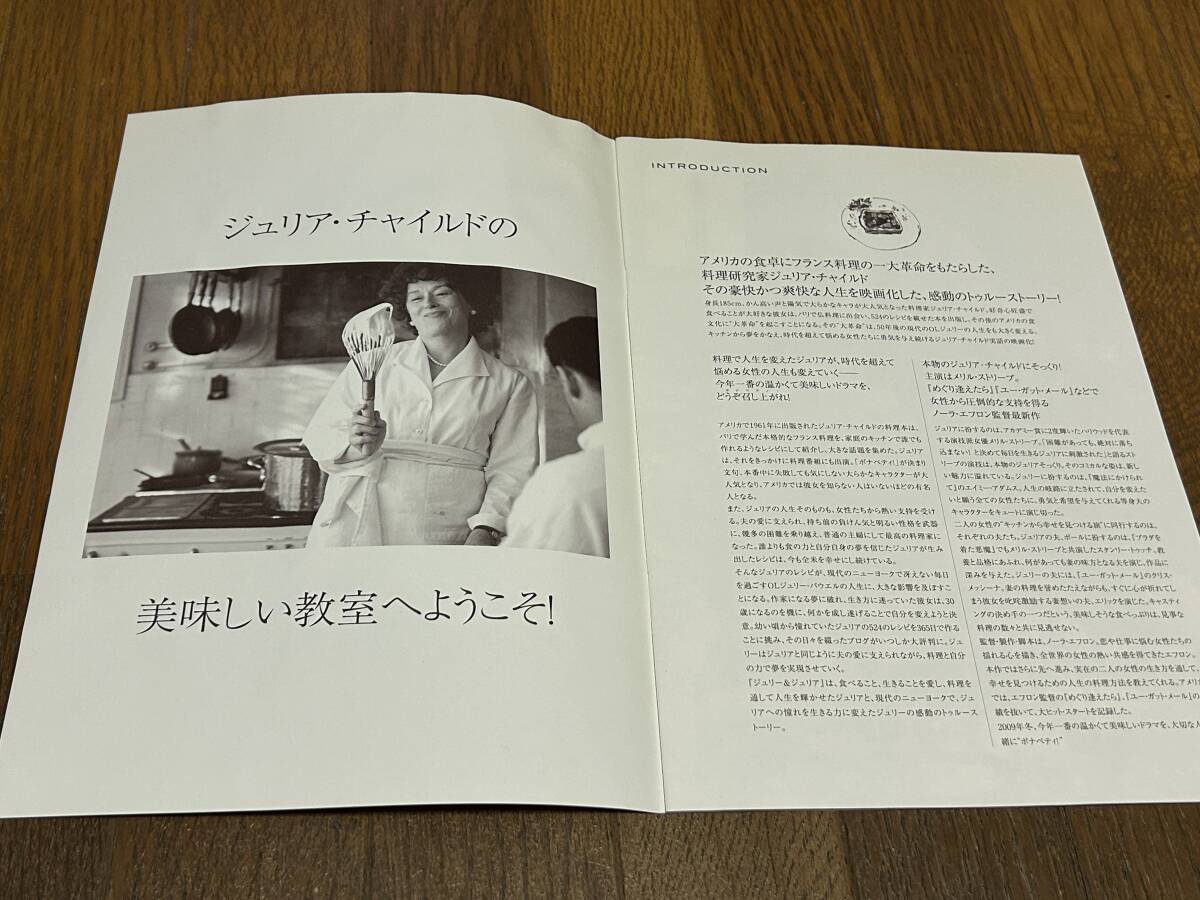 ジュリア・チャイルドの
美味しい教室へようこそ!
INTRODUCTION
アメリカの食卓にフランス料理の一大革命をもたらした、
料理研究家ジュリア・チャイルド
その豪快かつ爽快な人生を映画化した、感動のトゥルーストーリー!
身長185cm、かん高い声と陽気で大らかなキャラが大人気となった料理家ジュリア・チャイルド。好奇心旺盛で
食べることが大好きな彼女は、パリで仏料理に出会い、524のレシピを載せた本を出版し、その後のアメリカの食
文化に"大革命"を起こすことになる。その"大革命"は、50年後の現代のOLジュリーの人生をも大きく変える。
キッチンから夢をかなえ、時代を超えて悩める女性たちに勇気を与え続けるジュリア・チャイルド実話の映画化!
料理で人生を変えたジュリアが、時代を超えて
悩める女性の人生も変えていく——
今年一番の温かくて美味しいドラマを、
どうぞ召し上がれ!
アメリカで1961年に出版されたジュリア・チャイルドの料理本は、
パリで学んだ本格的なフランス料理を、家庭のキッチンで誰でも
作れるようなレシピにして紹介し、大きな話題を集めた。ジュリア
は、それをきっかけに料理番組にも出演。『ボナペティ!』が決まり
文句、本番中に失敗しても気にしない大らかなキャラクターが大
人気となり、アメリカでは彼女を知らない人はいないほどの有名
人となる。
また、ジュリアの人生そのものも、女性たちから熱い支持を受け
る。夫の愛に支えられ、持ち前の負けん気と明るい性格を武器
に、幾多の困難を乗り越え、普通の主婦にして最高の料理家に
なった。誰よりも食の力と自分自身の夢を信じたジュリアが生み
出したレシピは、今も全米を幸せにし続けている。
そんなジュリアのレシピが、現代のニューヨークで冴えない毎日
を過ごすOLジュリー・パウエルの人生に、大きな影響を及ぼすこ
とになる。作家になる夢に破れ、生き方に迷っていた彼女は、30
歳になるのを機に、何かを成し遂げることで自分を変えようと決
意。幼い頃から憧れていたジュリアの524のレシピを365日で作る
ことに挑み、その日々を綴ったブログがいつしか大評判に。ジュ
リーはジュリアと同じように夫の愛に支えられながら、料理と自分
の力で夢を実現させていく。
『ジュリー&ジュリア』は、食べること、生きることを愛し、料理を
通して人生を輝かせたジュリアと、現代のニューヨークで、ジュ
リアへの憧れを生きる力に変えたジュリーの感動のトゥルースー
トーリー。
本物のジュリア・チャイルドにそっくり!
主演はメリル・ストリープ。
『めぐり逢えたら』『ユー・ガット・メール』などで
女性から圧倒的な支持を得る
ノーラ・エフロン監督最新作
ジュリアに扮するのは、アカデミー賞に2度輝いたハリウッドを代表
する演技派女優メリル・ストリープ。「困難があっても、絶対に落ち
込まない! と決めて毎日を生きるジュリアに刺激された」と語るスト
リープの演技は、本物のジュリアそっくり。そのコミカルな姿は、新し
い魅力に溢れている。ジュリーに扮するのは、『魔法にかけられ
て』のエイミー・アダムス。人生の岐路に立たされて、自分を変えた
いと願う全ての女性たちに、勇気と希望を与えてくれる等身大の
キャラクターをキュートに演じ切った。
二人の女性の"キッチンから幸せを見つける旅"に同行するのは、
それぞれの夫たち。ジュリアの夫、ポールに扮するのは、『プラダを
着た悪魔』でもメリル・ストリープと共演したスタンリー・トゥッチ。教
養と品格にあふれ、何があっても妻の味方となる夫を演じ、作品に
深みを与えた。ジュリーの夫には、『ユー・ガット・メール』のクリス・
メッシーナ。妻の料理を誉めたたえながらも、すぐに心が折れてし
まう彼女を叱咤激励する妻想いの夫、エリックを演じた。キャスティ
ングの決め手の一つだという、美味しそうな食べっぷりは、見事な
料理の数々と共に見逃せない。
監督・製作・脚本は、ノーラ・エフロン。恋や仕事に悩む女性たちの
揺れる心を描き、全世界の女性の熱い共感を得てきたエフロン。
本作ではさらに先へ進み、実在の二人の女性の生き方を通して、
幸せを見つけるための人生の料理方法を教えてくれる。アメリカ
では、エフロン監督の『めぐり逢えたら』、『ユー・ガット・メール』の
績を抜いて、大ヒット・スタートを記録した。
2009年冬、今年一番の温かくて美味しいドラマを、大切な人
緒に"ボナペティ!"